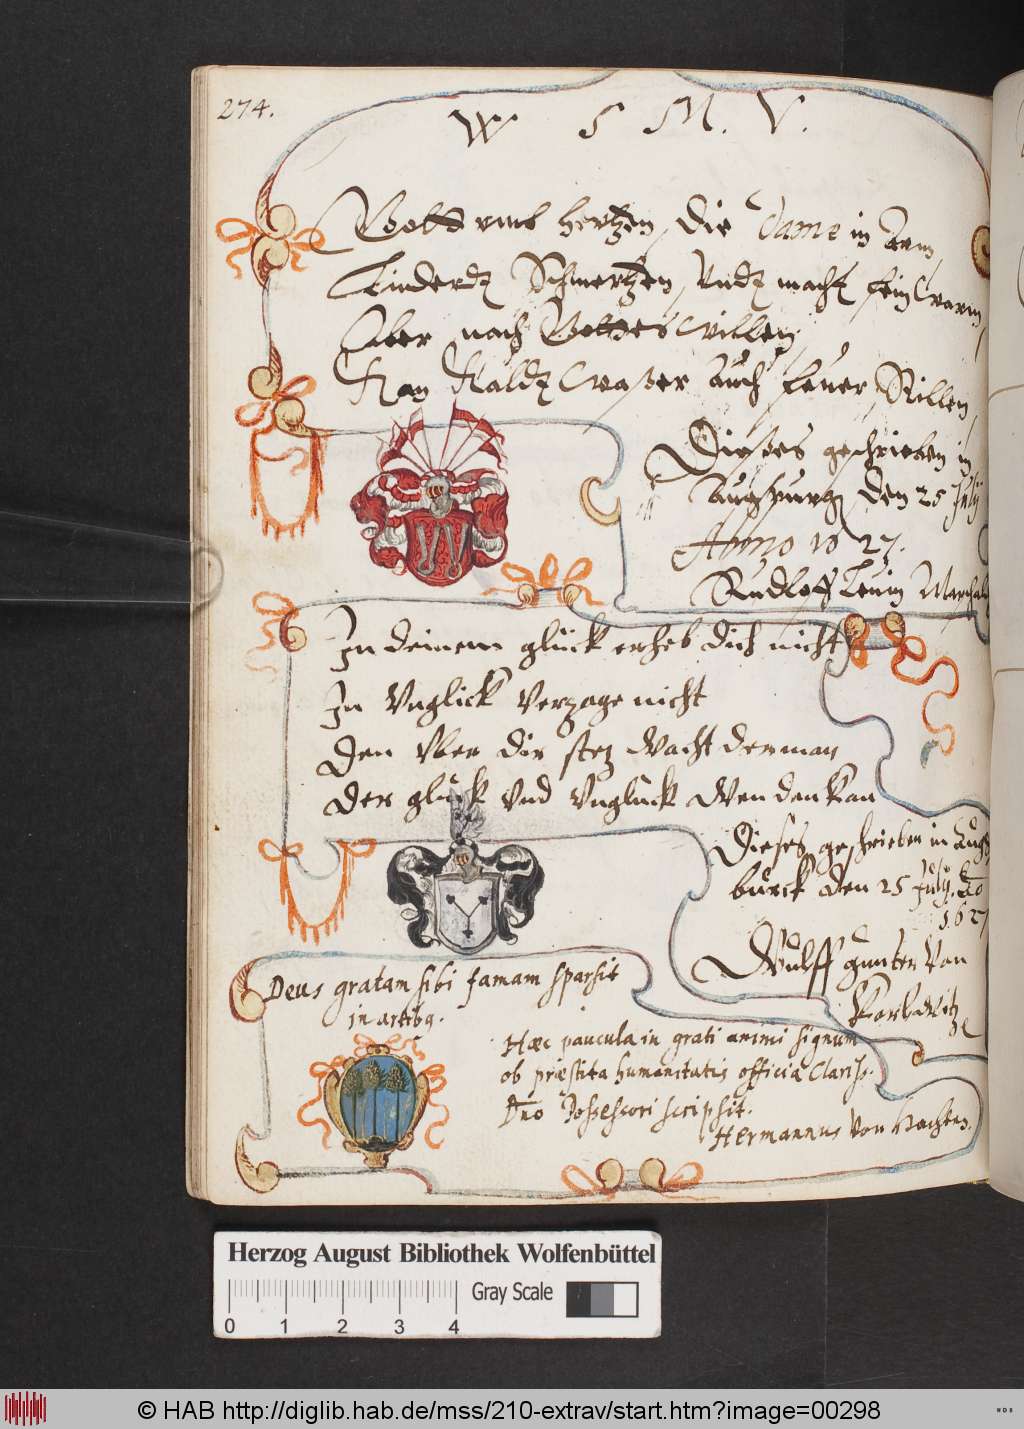 274.
W S M. V.
Gott umb hertzen, die Dame in Arm,
Linderdt Schmertzen, Undt macht fein Warm,
Aber nach Gottes Willen,
Kan Kaldt Waßer auch feuer Stillen,
Dießes geschrieben in
Augspurg den 25 July
Anno 1627.
Rudloff Leuin Marschalck
In deinem glück erheb dich nicht
In Unglick verzage nicht
Den Uber dir stetz Wacht der man
Der glück Und Unglück Wenden kan
Dieses geschrieben in Augs
burck den 25 July. Ao
1627
Wulff gunter Von
Karlowitz
Deus gratam sibi famam sparsit
in artibq.
Hæc paucula in grati animi signum
ob præstita humanitatis officia Clariss.
Dno Possessori scripsit.
Hermannus Von
Herzog August Bibliothek Wolfenbüttel
Gray Scale
0 1 2 3 4
© HAB http://diglib.hab.de/mss/210-extrav/start.htm?image=00298